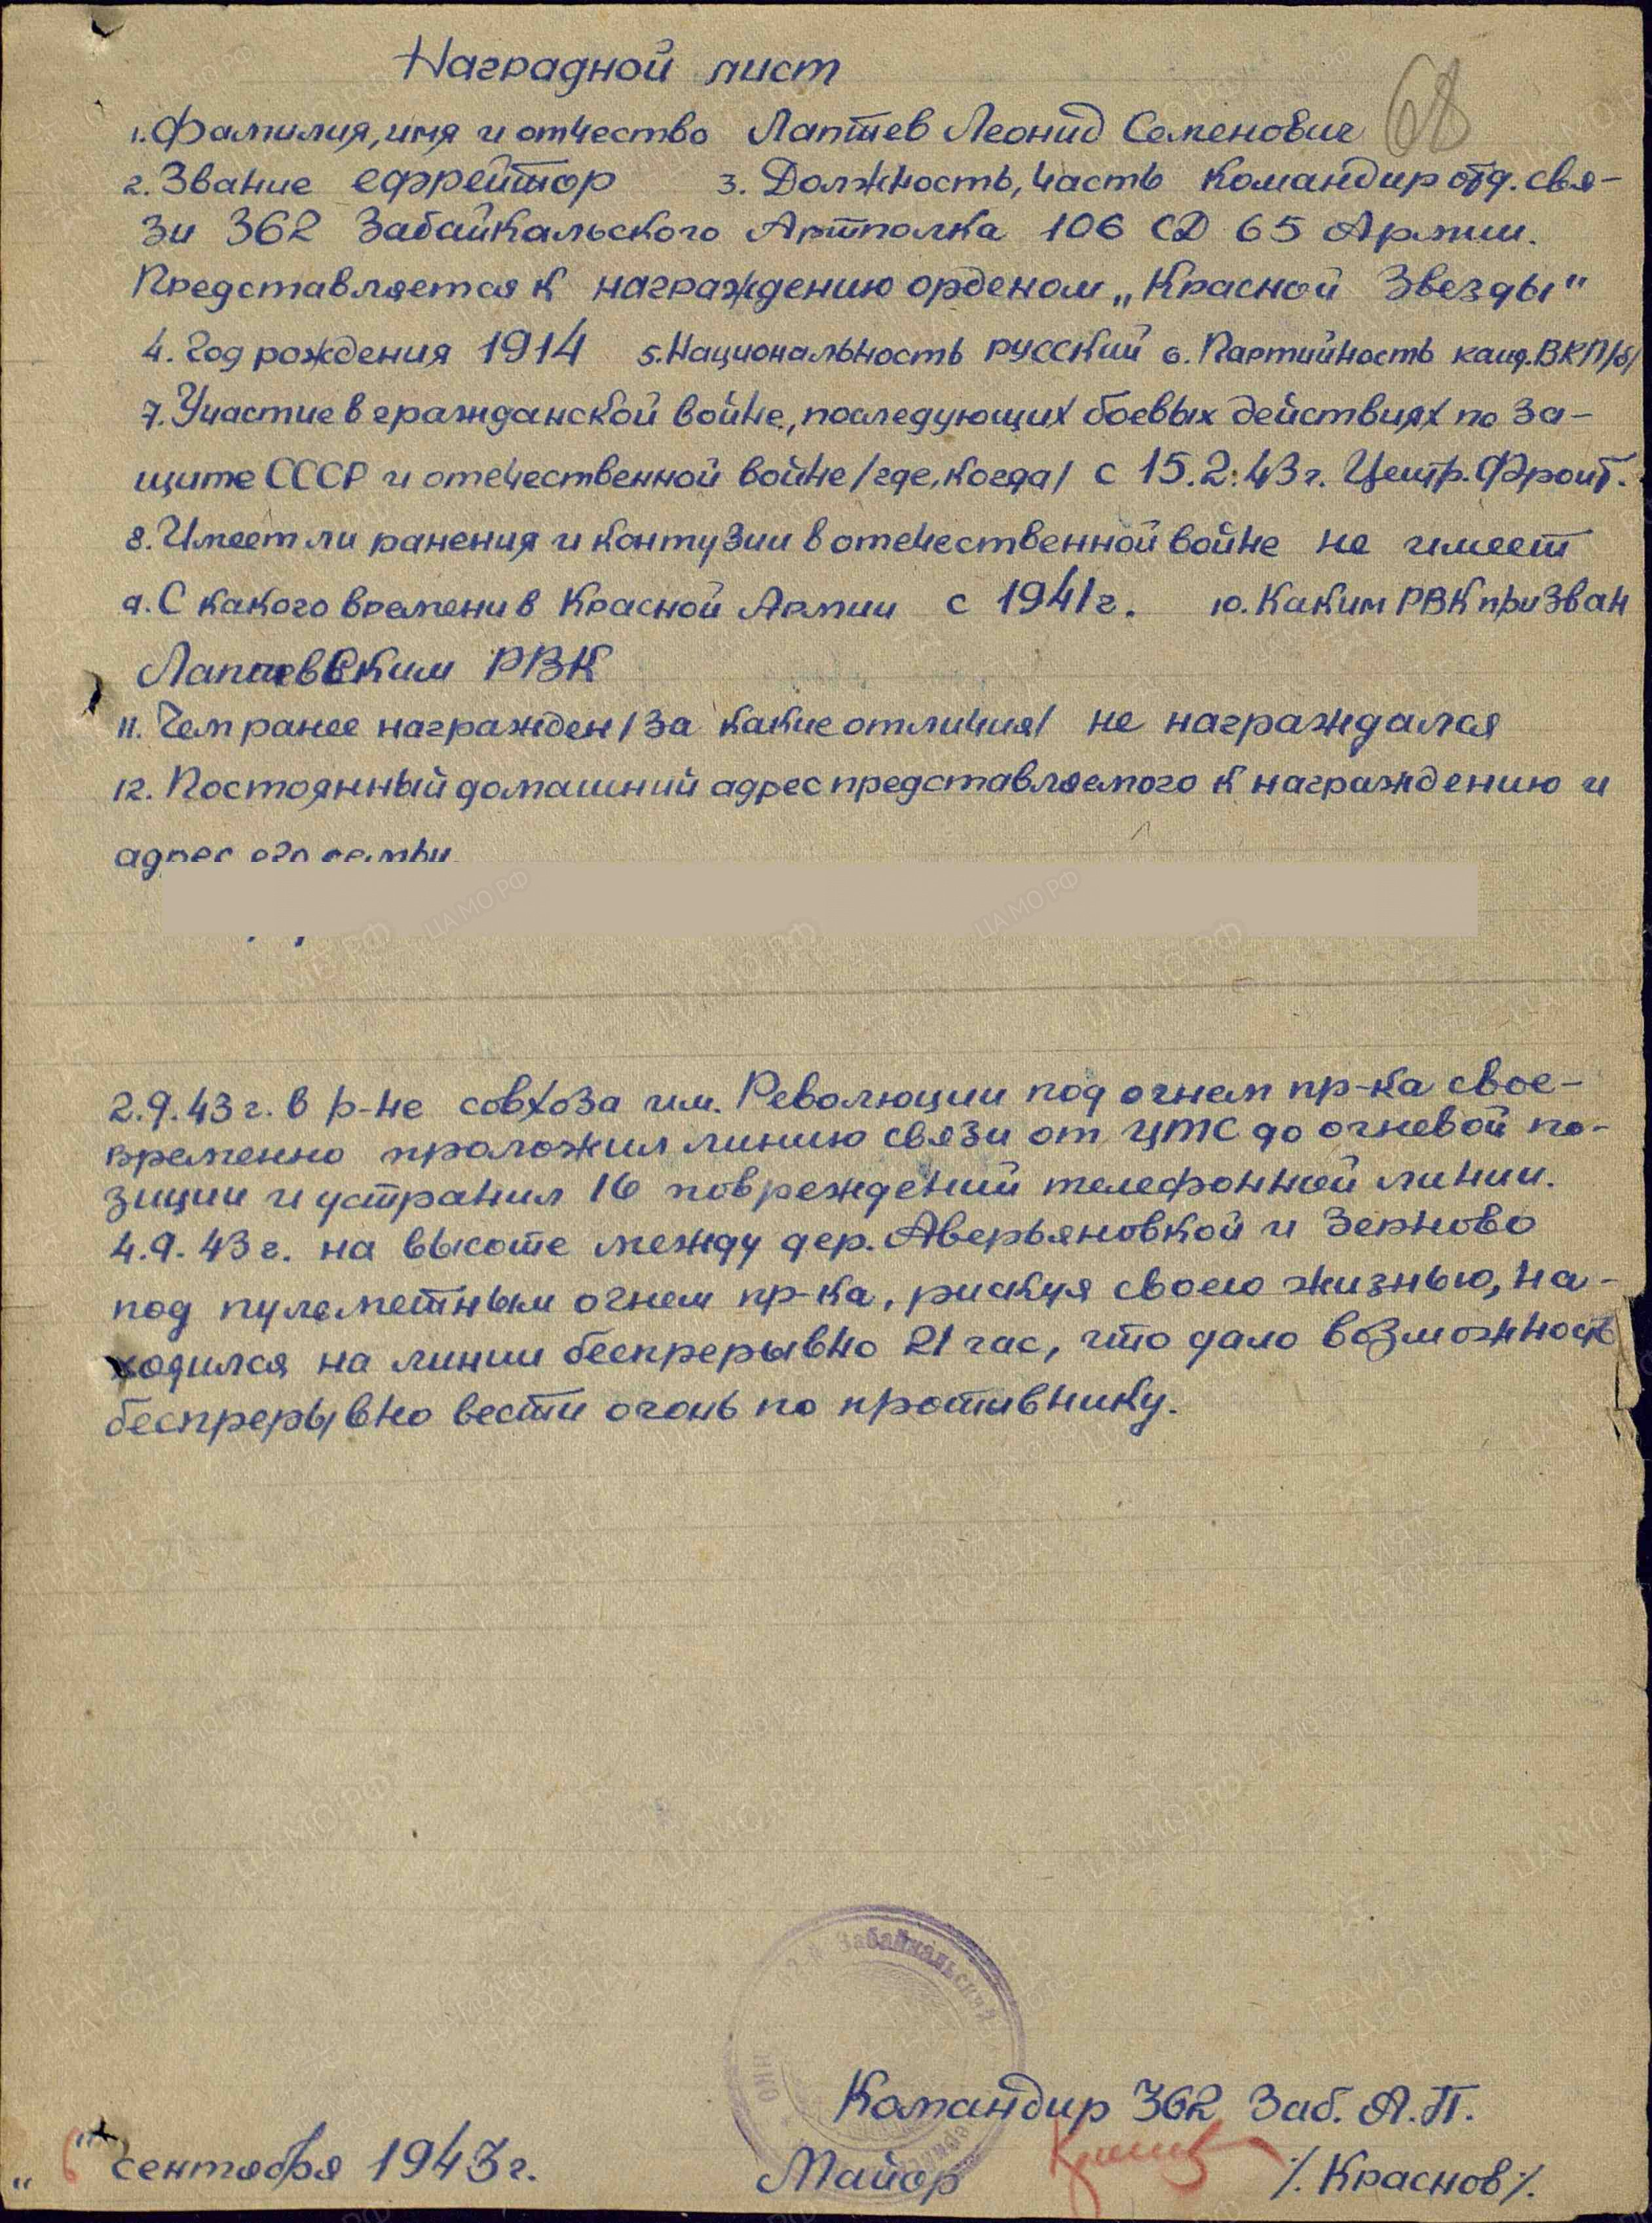 Наградной лист
68
1. Фамилия, имя и отчество Лаптев Леонид Семенович
2. Звание ефрейтор 3. Должность, часть командир отд. свя-
зи 362 Забайкальского Артполка 106 СД 65 Армии.
Представляется к награждению орденом „Красной Звезды"
4. Год рождения 1914 5. Национальность русский 6. Партийность канд. ВКП/б/
7. Участие в гражданской войне, последующих боевых действиях по за-
щите СССР и отечественной войне /где, когда/ с 15.2.43 г. Центр. Фронт.
8. Имеет ли ранения и контузии в отечественной войне не имеет
9. С какого времени в Красной Армии с 1941 г. 10. Каким РВК призван
РВК
11. Чем ранее награжден /за какие отличия/ не награждался
12. Постоянный домашний адрес представляемого к награждению и
адрес его семьи
2.9.43 г. в р-не совхоза им. Революции под огнем пр-ка свое-
временно проложил линию связи от ЦТС до огневой по-
зиции и устранил 16 повреждений телефонной линии.
4.9.43 г. на высоте между дер. Аверьяновкой и Зерново
под пулеметным огнем пр-ка, рискуя своею жизнью, на-
ходился на линии беспрерывно 21 час, что дало возможность
беспрерывно вести огонь по противнику.
Забайкальский
Командир 362 Заб. А.П.
„6" сентября 1943 г. Майор /. Краснов /.